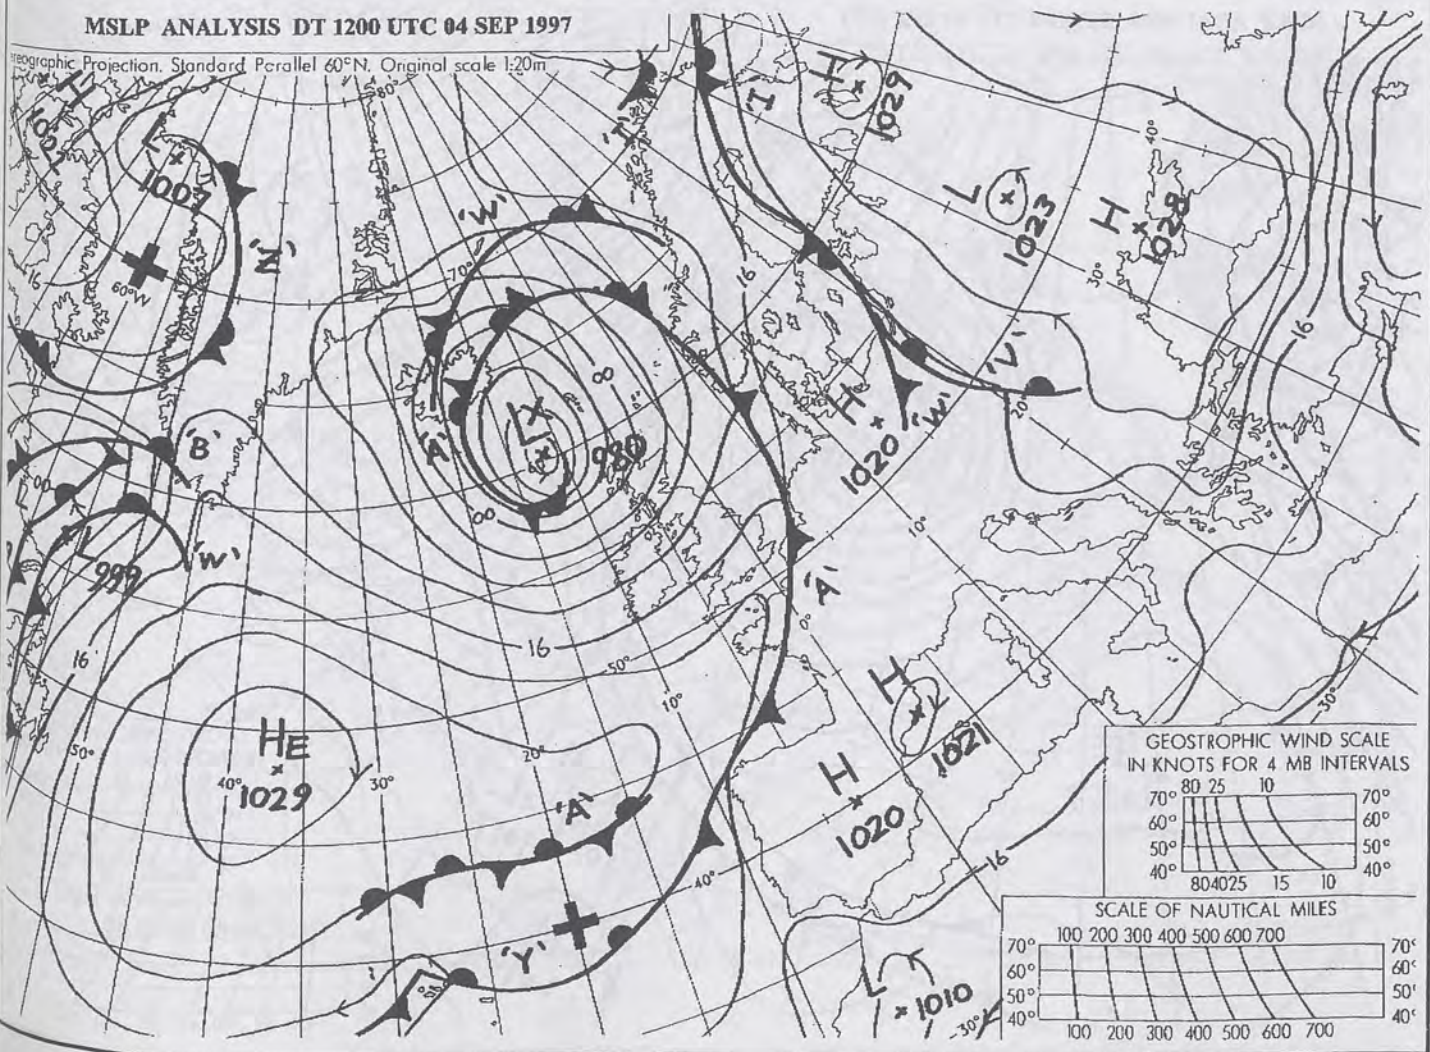 MSLP ANALYSIS DT 1200 UTC 04 SEP 1997
reographic Projection, Standard Parallel 60°N, Original scale 1:20m
80°
H
L
1007
'N'
16
60°W
70°
'W'
'T'
H
1029
L
1023
H
1028
40°
30°
16
16
00
'A'
L
980
00
H
1020
'W'
'V'
20°
10°
'B'
'W'
L
999
16
16
50°
'A'
0°
10°
20°
30°
40°
50°
HE
1029
'A'
'Y'
40°
H
1021
H
1020
16
L
1010
30°
30°
GEOSTROPHIC WIND SCALE
IN KNOTS FOR 4 MB INTERVALS
80 25 10
70° 70°
60° 60°
50° 50°
40° 40°
80 40 25 15 10
SCALE OF NAUTICAL MILES
100 200 300 400 500 600 700
70° 70°
60° 60°
50° 50°
40° 40°
100 200 300 400 500 600 700